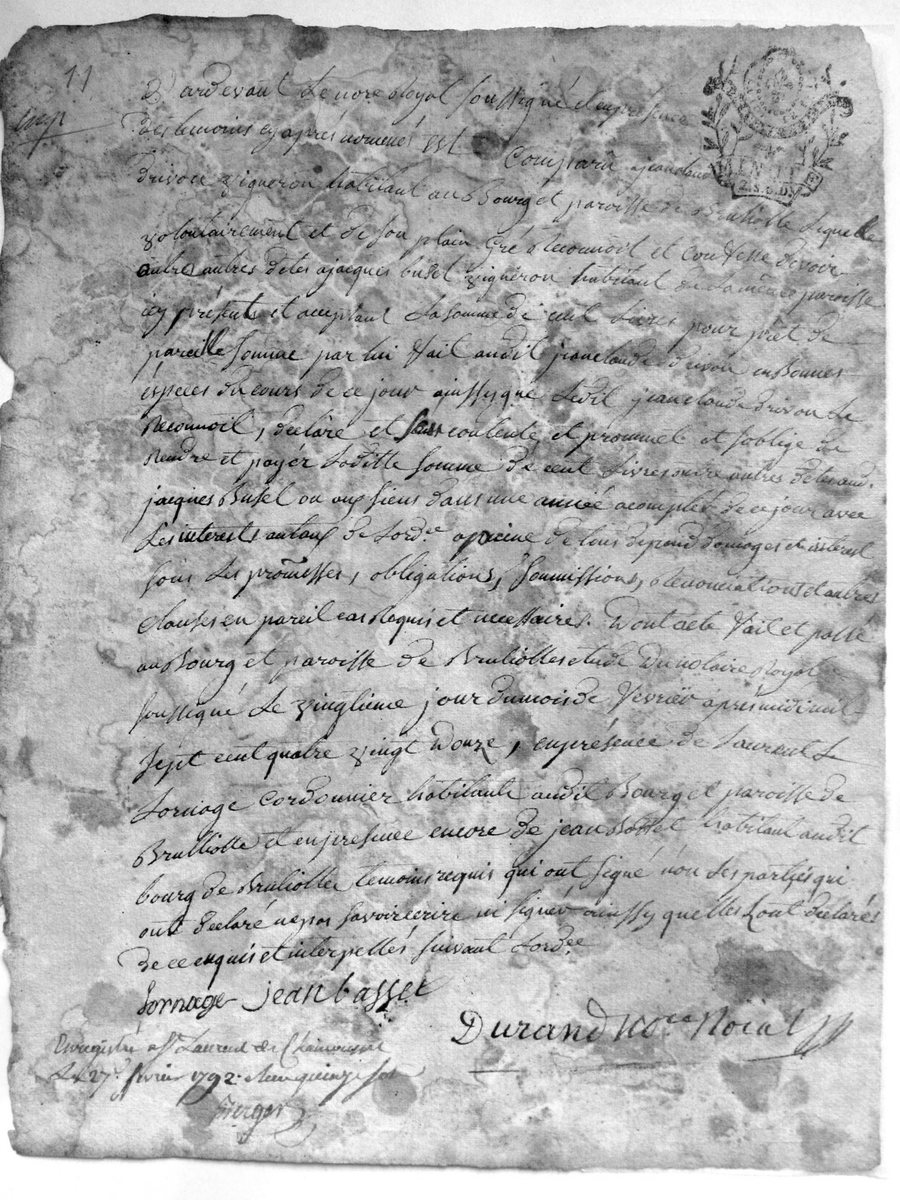 11
exp
Pardevant Le nore Royal soussigné et en presence
des temoins cy après nommés est Comparu jean claude
MINUTE
2. S. 8. D.
drivon vigneron habitant au Bourg et paroisse de Brulliolle Lequel de
volontairement et de son plain Gré Reconnoit et Confesse devoir
entre autres dettes a jacques buset vigneron habitant de La même paroisse
icy présents et acceptant La somme de cent Livres pour prêt de
pareille somme par lui fait audit jean claude drivon en Bonnes
éspeces du cours de ce jour ainssy que Ledit jean claude drivon Le
Reconnoit, declare et contente et prommet et soblige de
Rendre et payér Laditte somme de cent Livres entre autres dettes aud.
jacques Buset ou aux siens dans une année acompter de ce jour avec
Les interets au taux de Lordce apeine de tous depend domages et interest
sous Les promesses, obligations, soumissions, Renonciations et autres
clauses en pareil cas Requis et necessaires. Dont acte fait et passé
au Bourg et paroisse de Brulliolles etude du notaire Royal
soussigné Le vingtième jour du mois de février après midi mil
sept cent quatre vingt douze, en présence de Laurent
Tornage cordonnier habitants audit Bourg et paroisse de
Brulliolle et en présence encore de jean Basset habitant audit
bourg de Brulliolle temoins requis qui ont signé non Les partyes qui
ont declaré ne pas savoir ecrire ni signer ainssy quelles Lont declarés
de ce enquis et interpellés suivant Lordce
Tornage jean basset
Durand No.re Roial
Enregistré a St Laurent de Chamousset
Le 27 février 1792. Reçu quinze sols
Berger